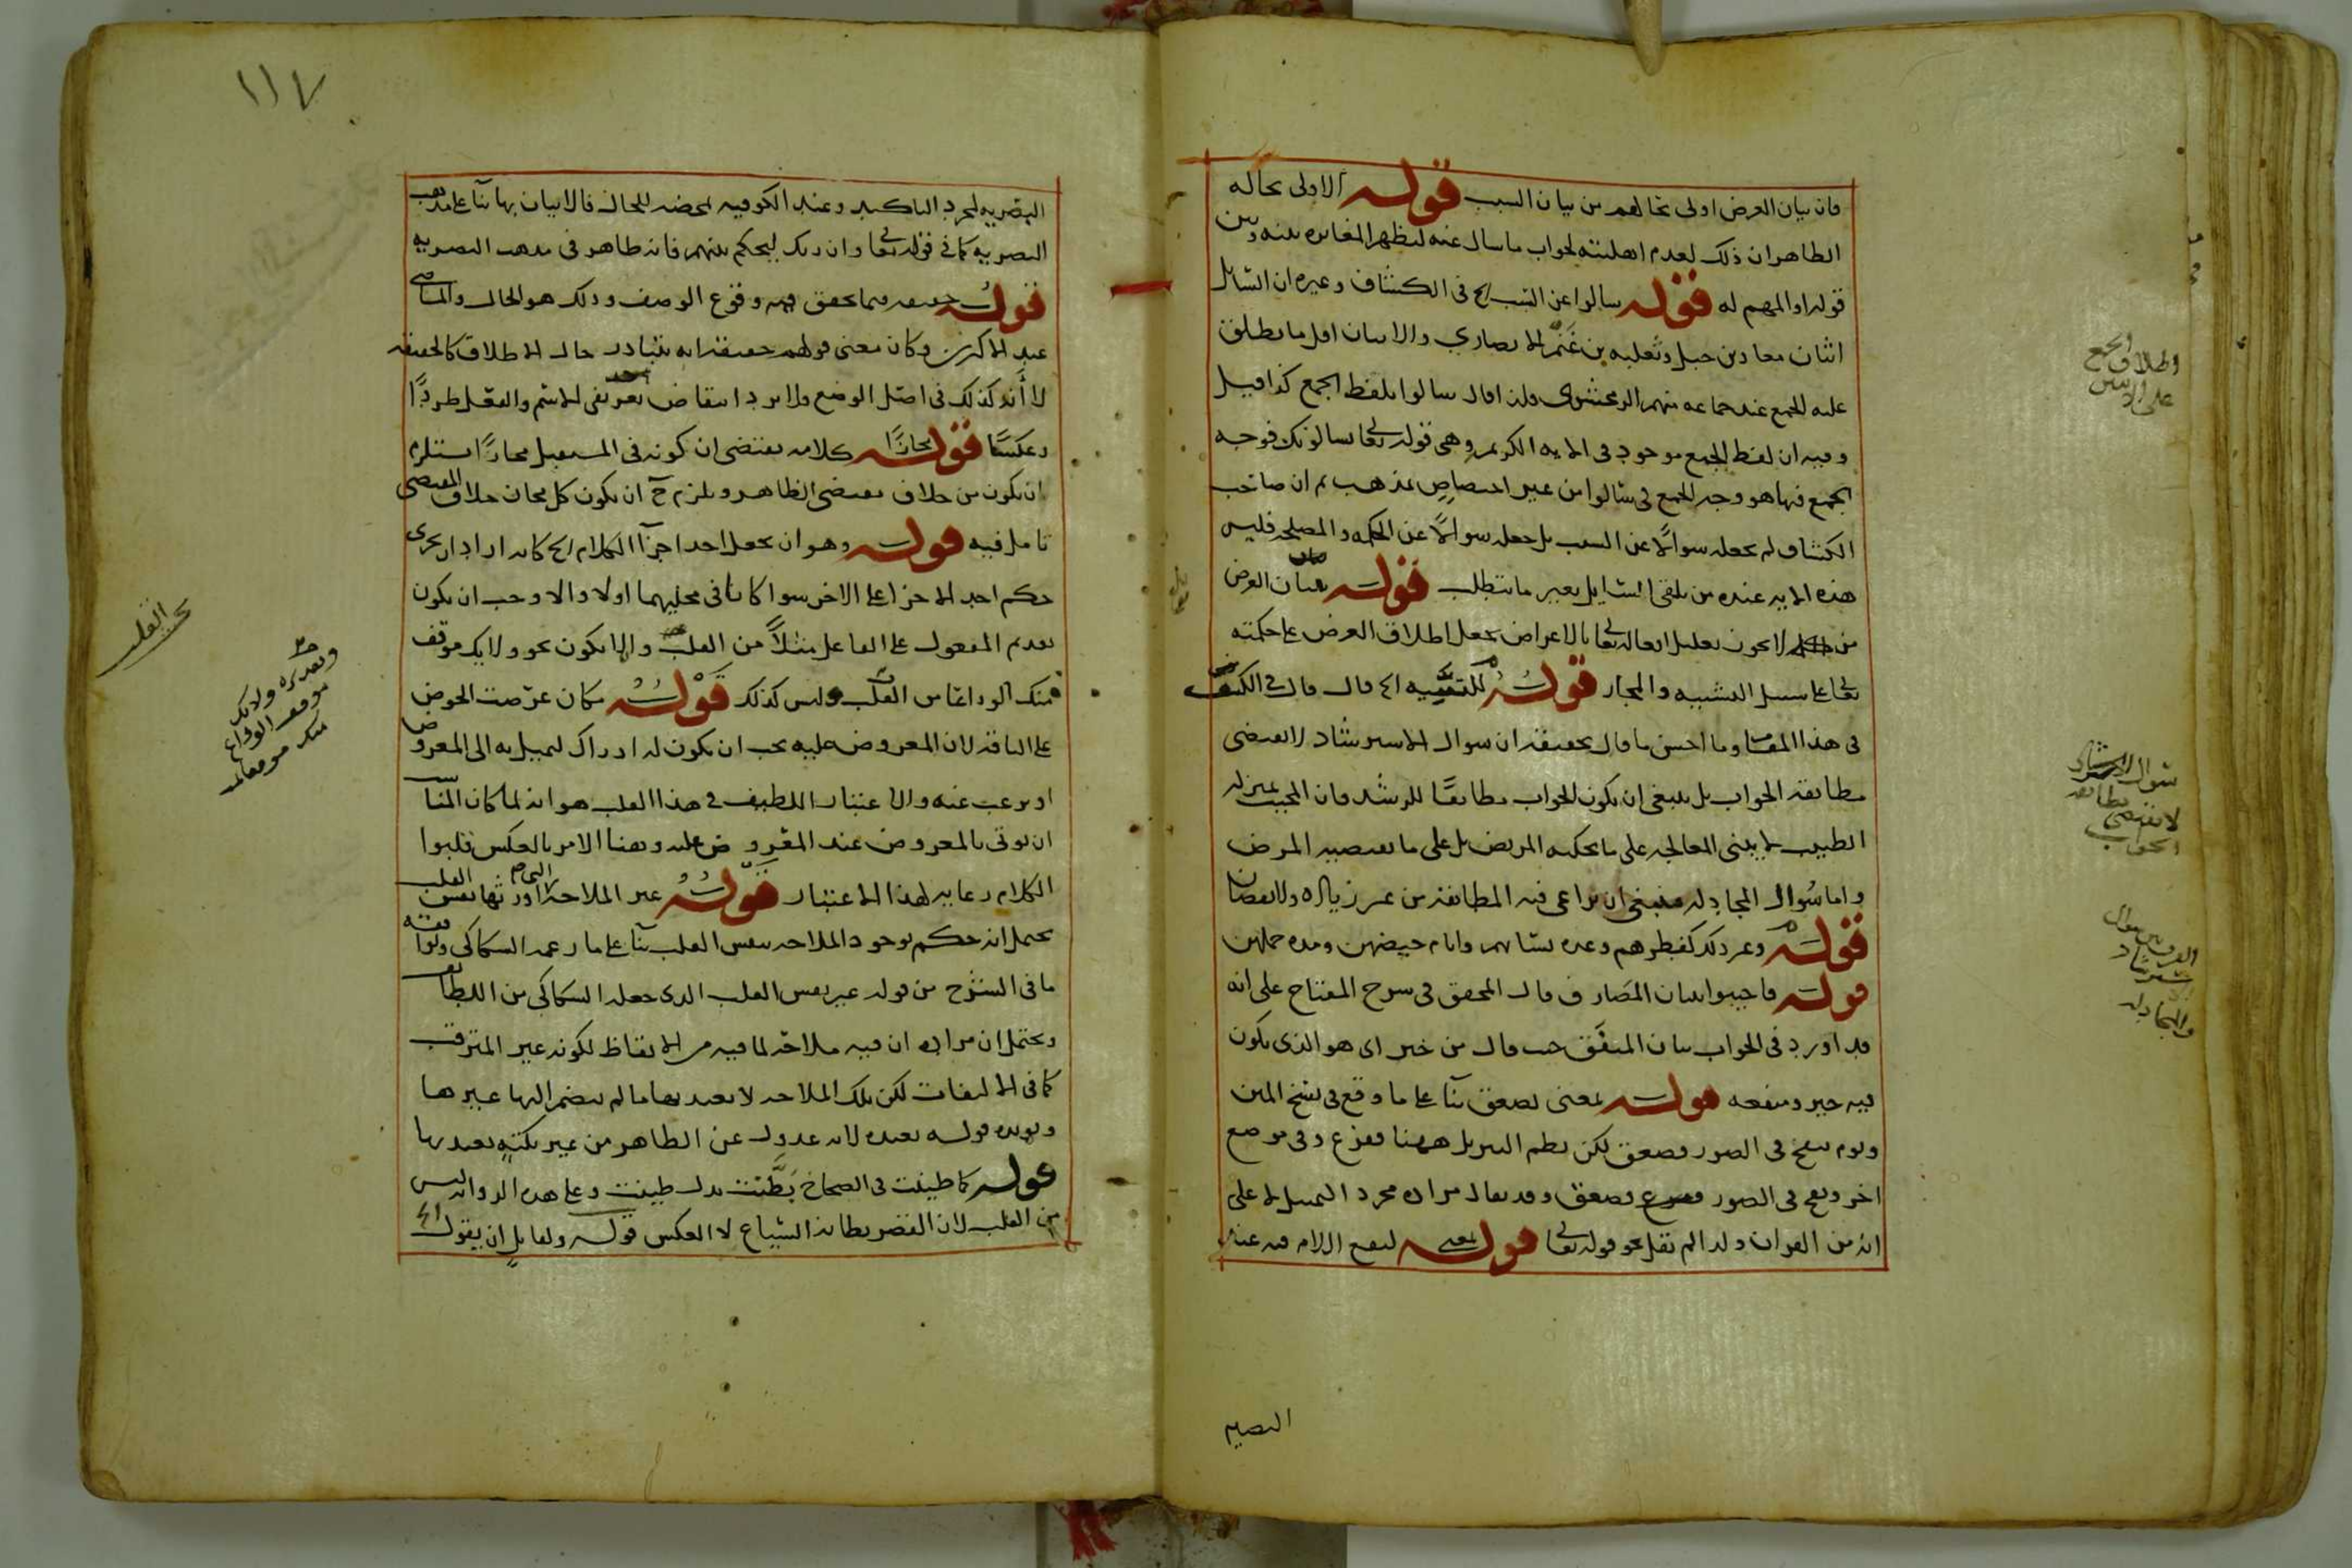 فان بيان الغرض اولى بحالهم من بيان السبب قوله الاولى بحاله
الظاهر ان ذلك لعدم اهليته لجواب ما سال عنه ليظهر المغايرة بينه وبين
قوله او المهم له قوله سالوا عن السبب الخ في الكشاف وغيره ان السايل
اثنان معاذ بن جبل وثعلبه بن غَنَم الانصاري والاثنان اقل ما يطلق
عليه الجمع عند جماعه منهم الزمخشري ولذا قال سالوا بلفظ الجمع كذا قيل
وفيه ان لفظ الجمع موجود في الايه الكريمه وهي قوله تعالى يسالونك فوجه
الجمع فيها هو وجه الجمع في سالوا من غير اختصاص بمذهب ثم ان صاحب
الكشاف لم يجعله سوالًا عن السبب بل جعله سوالًا عن الحكمه والمصلحه فليس
هذه الايه عنده من تلقي السايل بغير ما يتطلب قوله ببيان الغرض
من لا يجوز تعليل افعاله تعالى بالاغراض يجعل اطلاق الغرض على حكمته
تعالى على سبيل التشبيه والمجاز قوله للتنبيه الخ قال قال في الكشف
في هذا المقام وما احسن ما قال تحقيقه ان سوال الاسترشاد لا يقتضي
مطابقة الجواب بل ينبغي ان يكون الجواب مطابقًا للرشد فان المجيب بمنزله
الطبيب لا يبني المعالجه على ما يحكيه المريض بل على ما يقتضيه المرض
واما سُوال المجادله فينبغي ان يراعى فيه المطابقه من غير زياده ولا نقصان
قوله وغير ذلك كفطرهم وعدة نسائهم وايام حيضهن ومده حملهن
قوله فاجيبوا ببيان المصارف قال المحقق في شرح المفتاح على انه
قد اورد في الجواب بيان المنفَق حيث قال من خير اى هو الذى يكون
فيه خير ومنفعه قوله بمعنى يصعق بنآ على ما وقع في نسخ المتن
ويوم ينفخ في الصور فصعق لكن نظم التنزيل ههنا ففزع وفي موضع
اخر ونفخ في الصور فصعق وقد يقال مراده مجرد التمثيل لا على
انه من القران ولذا لم يقل نحو قوله تعالى قوله يعنى ليقع اللام فيه عند
البصريه
اطلاق الجمع
على الاثنين
سوال الاسترشاد
لا يقتضي مطابقه
الجواب
الفرق بين سوال
الاسترشاد
والمجادله
١١٧
البصريه لمجرد التاكيد وعند الكوفيه لمحضه للحال فالاتيان بها بنآ على مذهب
البصريه كما في قوله تعالى وان ربك ليحكم بينهم فانه ظاهر في مذهب البصريه
قوله حقيقه فيما تحقق فيه وقوع الوصف وذلك هو الحال والماضي
عند الاكثرين وكان معنى قولهم حقيقه انه يتبادر حال الاطلاق كالحقيقه
لا أنه كذلك في اصل الوضع ولا يرد انتقاض تعريفى الاسم والفعل طردًا
وعكسًا قوله مجازًا كلامه يقتضي ان كونه في المستقبل مجازًا استلزم
ان يكون من خلاف مقتضى الظاهر ويلزم ح ان يكون كل مجاز خلاف المقتضى
تامل فيه قوله وهو ان يجعل احد اجزآ الكلام الخ كانه اراد ان يجرى
حكم احد الاجزا على الاخر سوا كانا في محليهما اولا والا وجب ان يكون
تقديم المفعول على الفاعل مثلاً من القلب والا يكون نحو ولا يك موقف
منك الوداعا من القلب وليس كذلك قوله مكان عرضت الحوض
على الناقه لان المعروض عليه يجب ان يكون له ادراك ليميل به الى المعروض
او يرغب عنه والاعتبار اللطيف في هذا القلب هو انه لما كان المناسب
ان يوتى بالمعروض عند المعروض عليه وههنا الامر بالعكس قلبوا
الكلام رعايه لهذا الاعتبار قوله غير الملاحه التي اورثها نفس القلب
يحتمل انه حكم بوجود الملاحه بنفس القلب بنآ على ما زعمه السكاكي وتوافقه
ما في الشرح من قوله غير نفس القلب الذى جعله السكاكي من اللطايف
ويحتمل ان مراده ان فيه ملاحة لما فيه من الايقاظ لكونه غير المترقب
كما في الالتفات لكن تلك الملاحه لا يعتد بها ما لم ينضم اليها غيرها
ويويده قوله بعيده لانه عدول عن الظاهر من غير نكتةٍ يعتد بها
قوله كما طينت في الصحاح بَطَّنْت بدل طينت وعلى هذه الروايه ليس
من القلب لان القصر بطانه السياع لا العكس قوله ولقايلٍ ان يقول الخ
بحث القلب
وتقديره ولا يك
موقف الوداع
منك موقفا